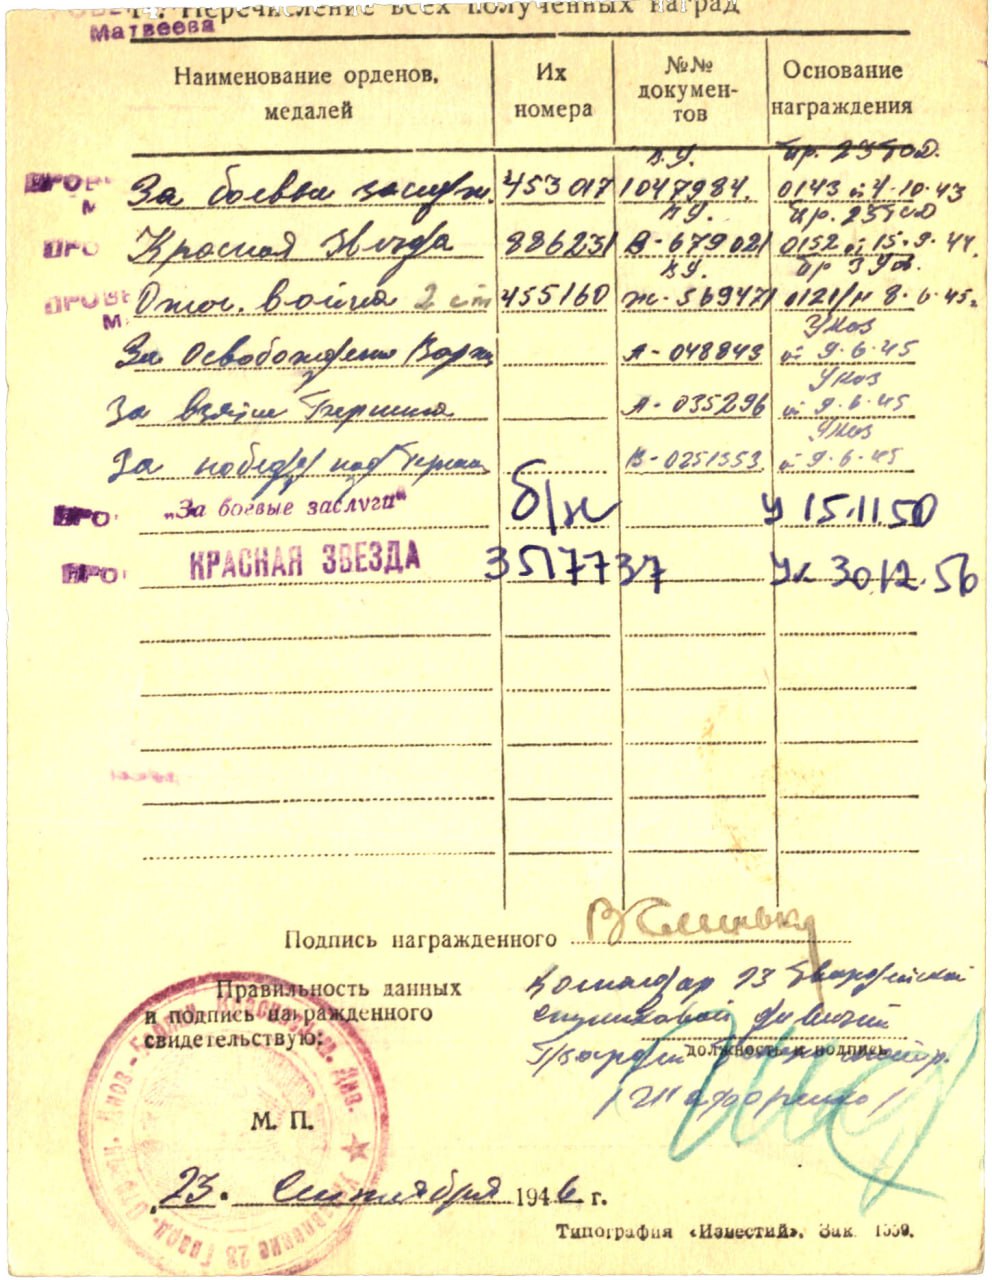 14. Перечисление всех полученных наград
Матвеева
Наименование орденов, медалей
Их номера
№№ документов
Основание награждения
в.у. пр. 23 год.
За боевы заслуж. 453017 1047984. 0143 от 4.10.43
в.у. пр. 23 год
Красная Звезда 886231 В-679021 0152 от 15.9.44.
в.у. пр 3 Уд.
Отеч. война 2 ст 455160 Ж-569471 0121/н 8.6.45г
Указ
За Освобождение Варш А-048843 от 9.6.45
Указ
За взятие Берлина А-035296 от 9.6.45
Указ
За победу над Герман В-0251353 от 9.6.45
„За боевые заслуги" б/н У 15.11.50
КРАСНАЯ ЗВЕЗДА 3517737 Ук 30.12.56
Подпись награжденного
Правильность данных
и подпись награжденного
свидетельствую:
Командир 23 Гвардейской
стрелковой дивизии
Гвардии
должность и подпись
М. П.
23. Сентября 1946 г.
Типография «Известий». Зак. 1559.